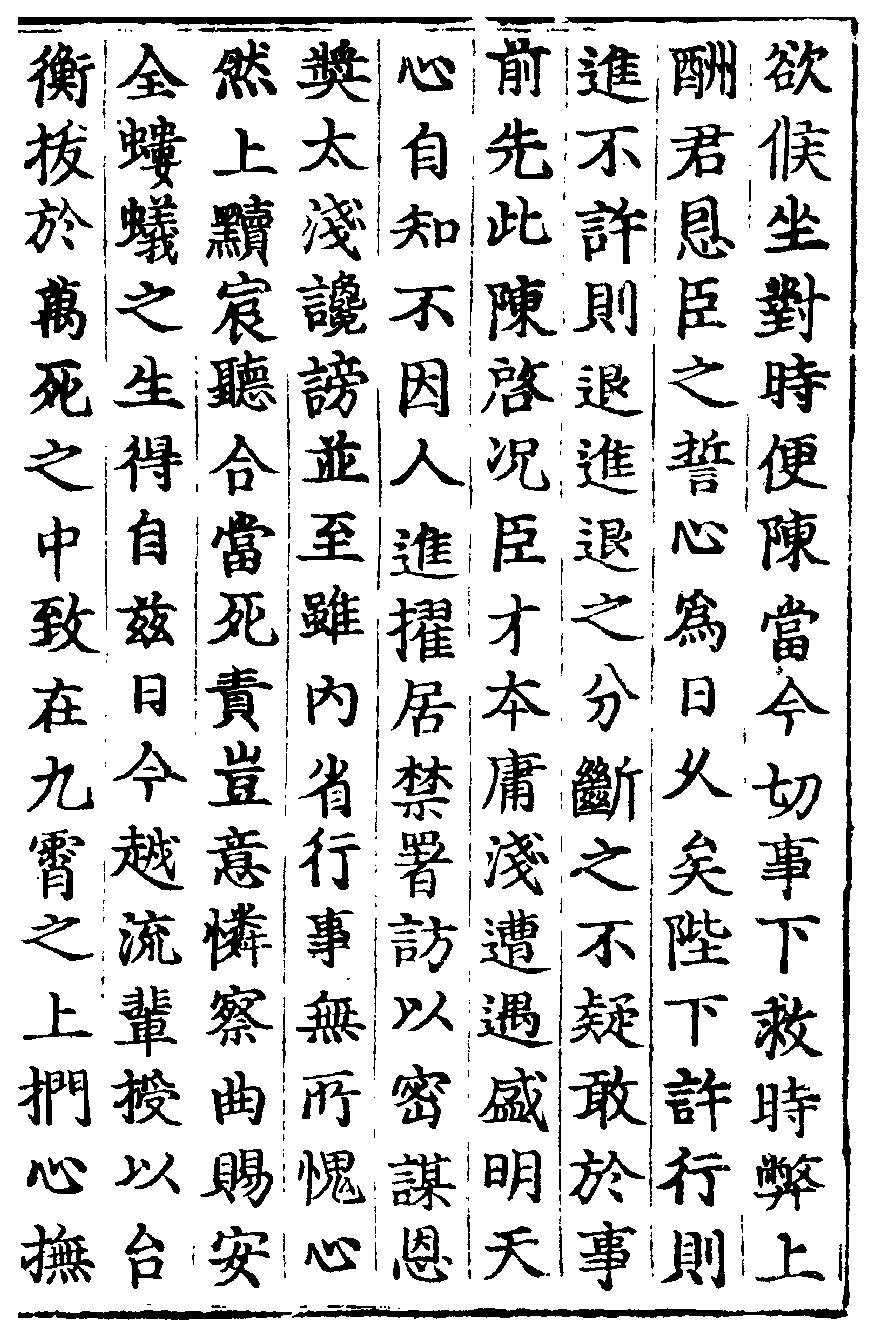 欲候坐對時便陳當今切事下救時弊上
酬君恩臣之誓心爲日乆矣陛下許行則
進不許則退進退之分斷之不疑敢於事
前先此陳啓况臣才本庸淺遭遇盛明天
心自知不因人進擢居禁署訪以密謀恩
奬太淺讒謗並至雖內省行事無所愧心
然上黷宸聽合當死責豈意憐察曲賜安
全螻蟻之生得自兹日今越流輩授以台
衡拔於萬死之中致在九霄之上捫心撫